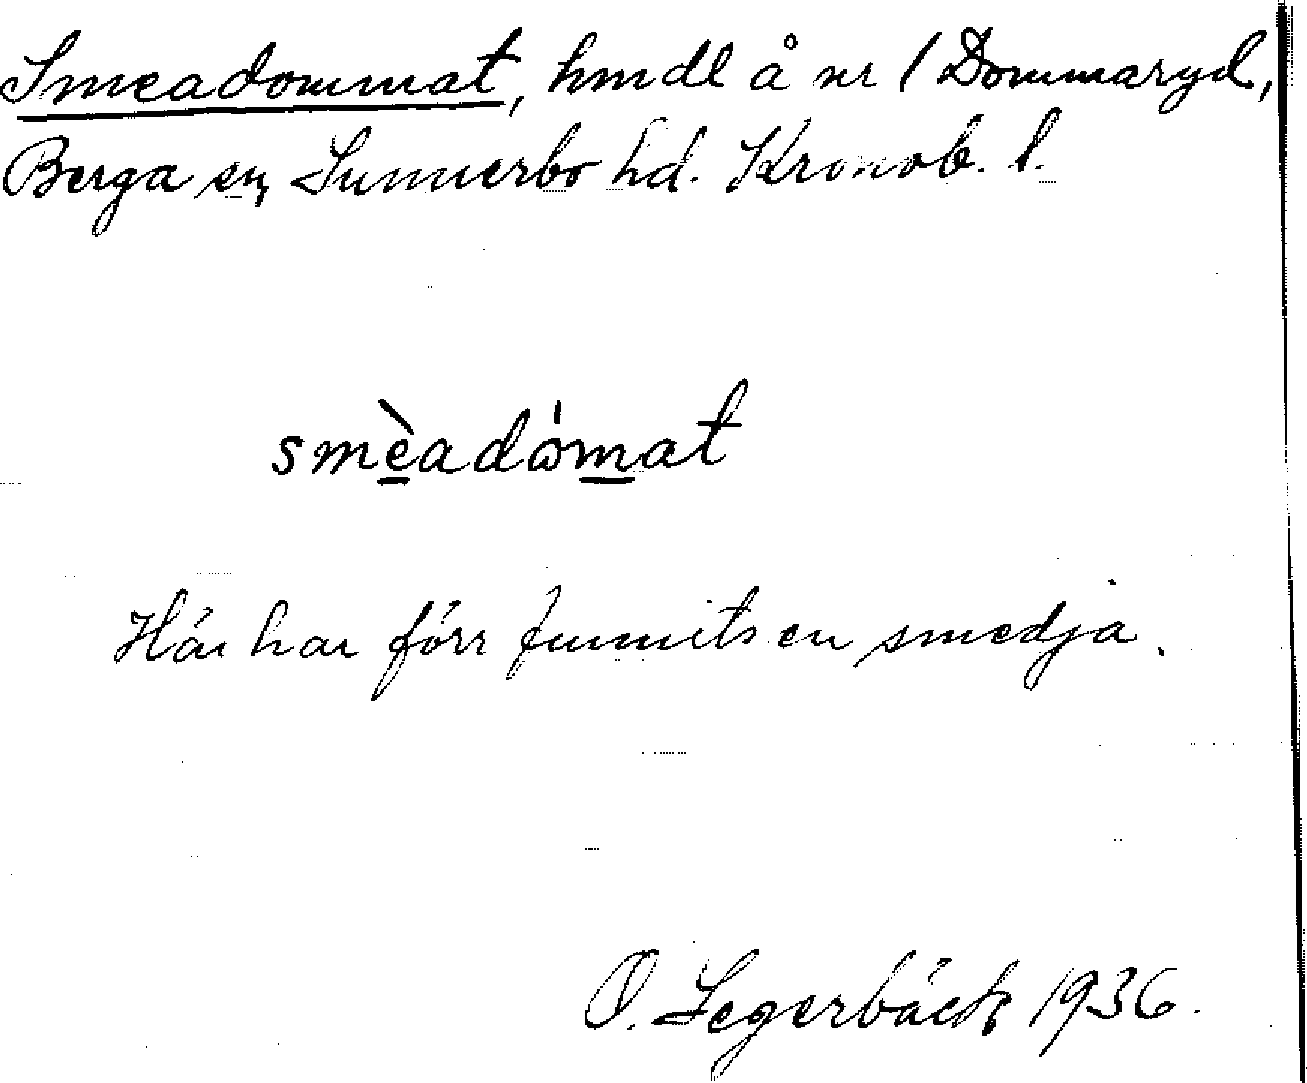 Smeadommat, hmdl å nr 1 Dommaryd,
Berga sn, Sunnerbo hd. Kronob. l.
smèadω̍mat
Här har förr funnits en smedja.
O. Segerbäck 1936.